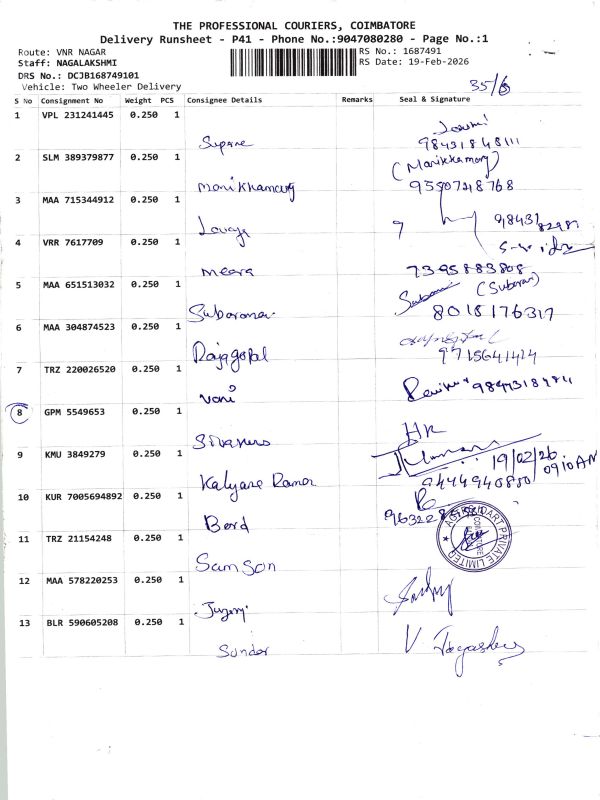 THE PROFESSIONAL COURIERS, COIMBATORE
Delivery Runsheet - P41 - Phone No.:9047080280 - Page No.:1
Route: VNR NAGAR
RS No.: 1687491
Staff: NAGALAKSHMI
RS Date: 19-Feb-2026
DRS No.: DCJB168749101
Vehicle: Two Wheeler Delivery
35/6
S No Consignment No Weight PCS Consignee Details Remarks Seal & Signature
1 VPL 231241445 0.250 1
98431848111
2 SLM 389379877 0.250 1
(Manikkamoorg)
manikkamoorg
9550748768
3 MAA 715344912 0.250 1
98431 82981
4 VRR 7617709 0.250 1
meera
7395883808
5 MAA 651513032 0.250 1
8018176317
6 MAA 304874523 0.250 1
Rajagopal
9715641424
7 TRZ 220026520 0.250 1
vani
8 GPM 5549653 0.250 1
9 KMU 3849279 0.250 1
19/02/26
0910AM
Kalyane Raman
9444940850
10 KUR 7005694892 0.250 1
11 TRZ 21154248 0.250 1
PRIVATE LIMITED
COIMBATORE
Samson
12 MAA 578220253 0.250 1
13 BLR 590605208 0.250 1
Sundar